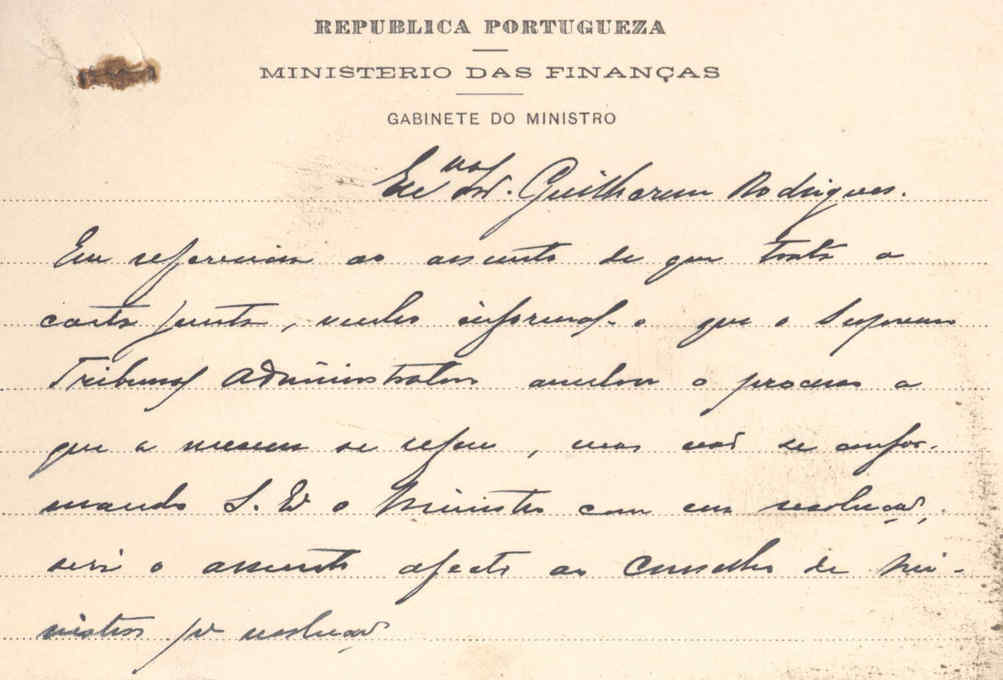 REPUBLICA PORTUGUEZA
MINISTERIO DAS FINANÇAS
GABINETE DO MINISTRO
Exmo Sr. Guilherme Rodrigues.
Em referencia ao assunto de que trata a
carta junta, venho informal-o que o Supremo
Tribunal Administrativo anulou o processo a
que a mesma se refere, mas não se confor-
mando S. Ex o Ministro com essa resolução,
será o assunto afecto ao Conselho de Mi-
nistros pa resolução